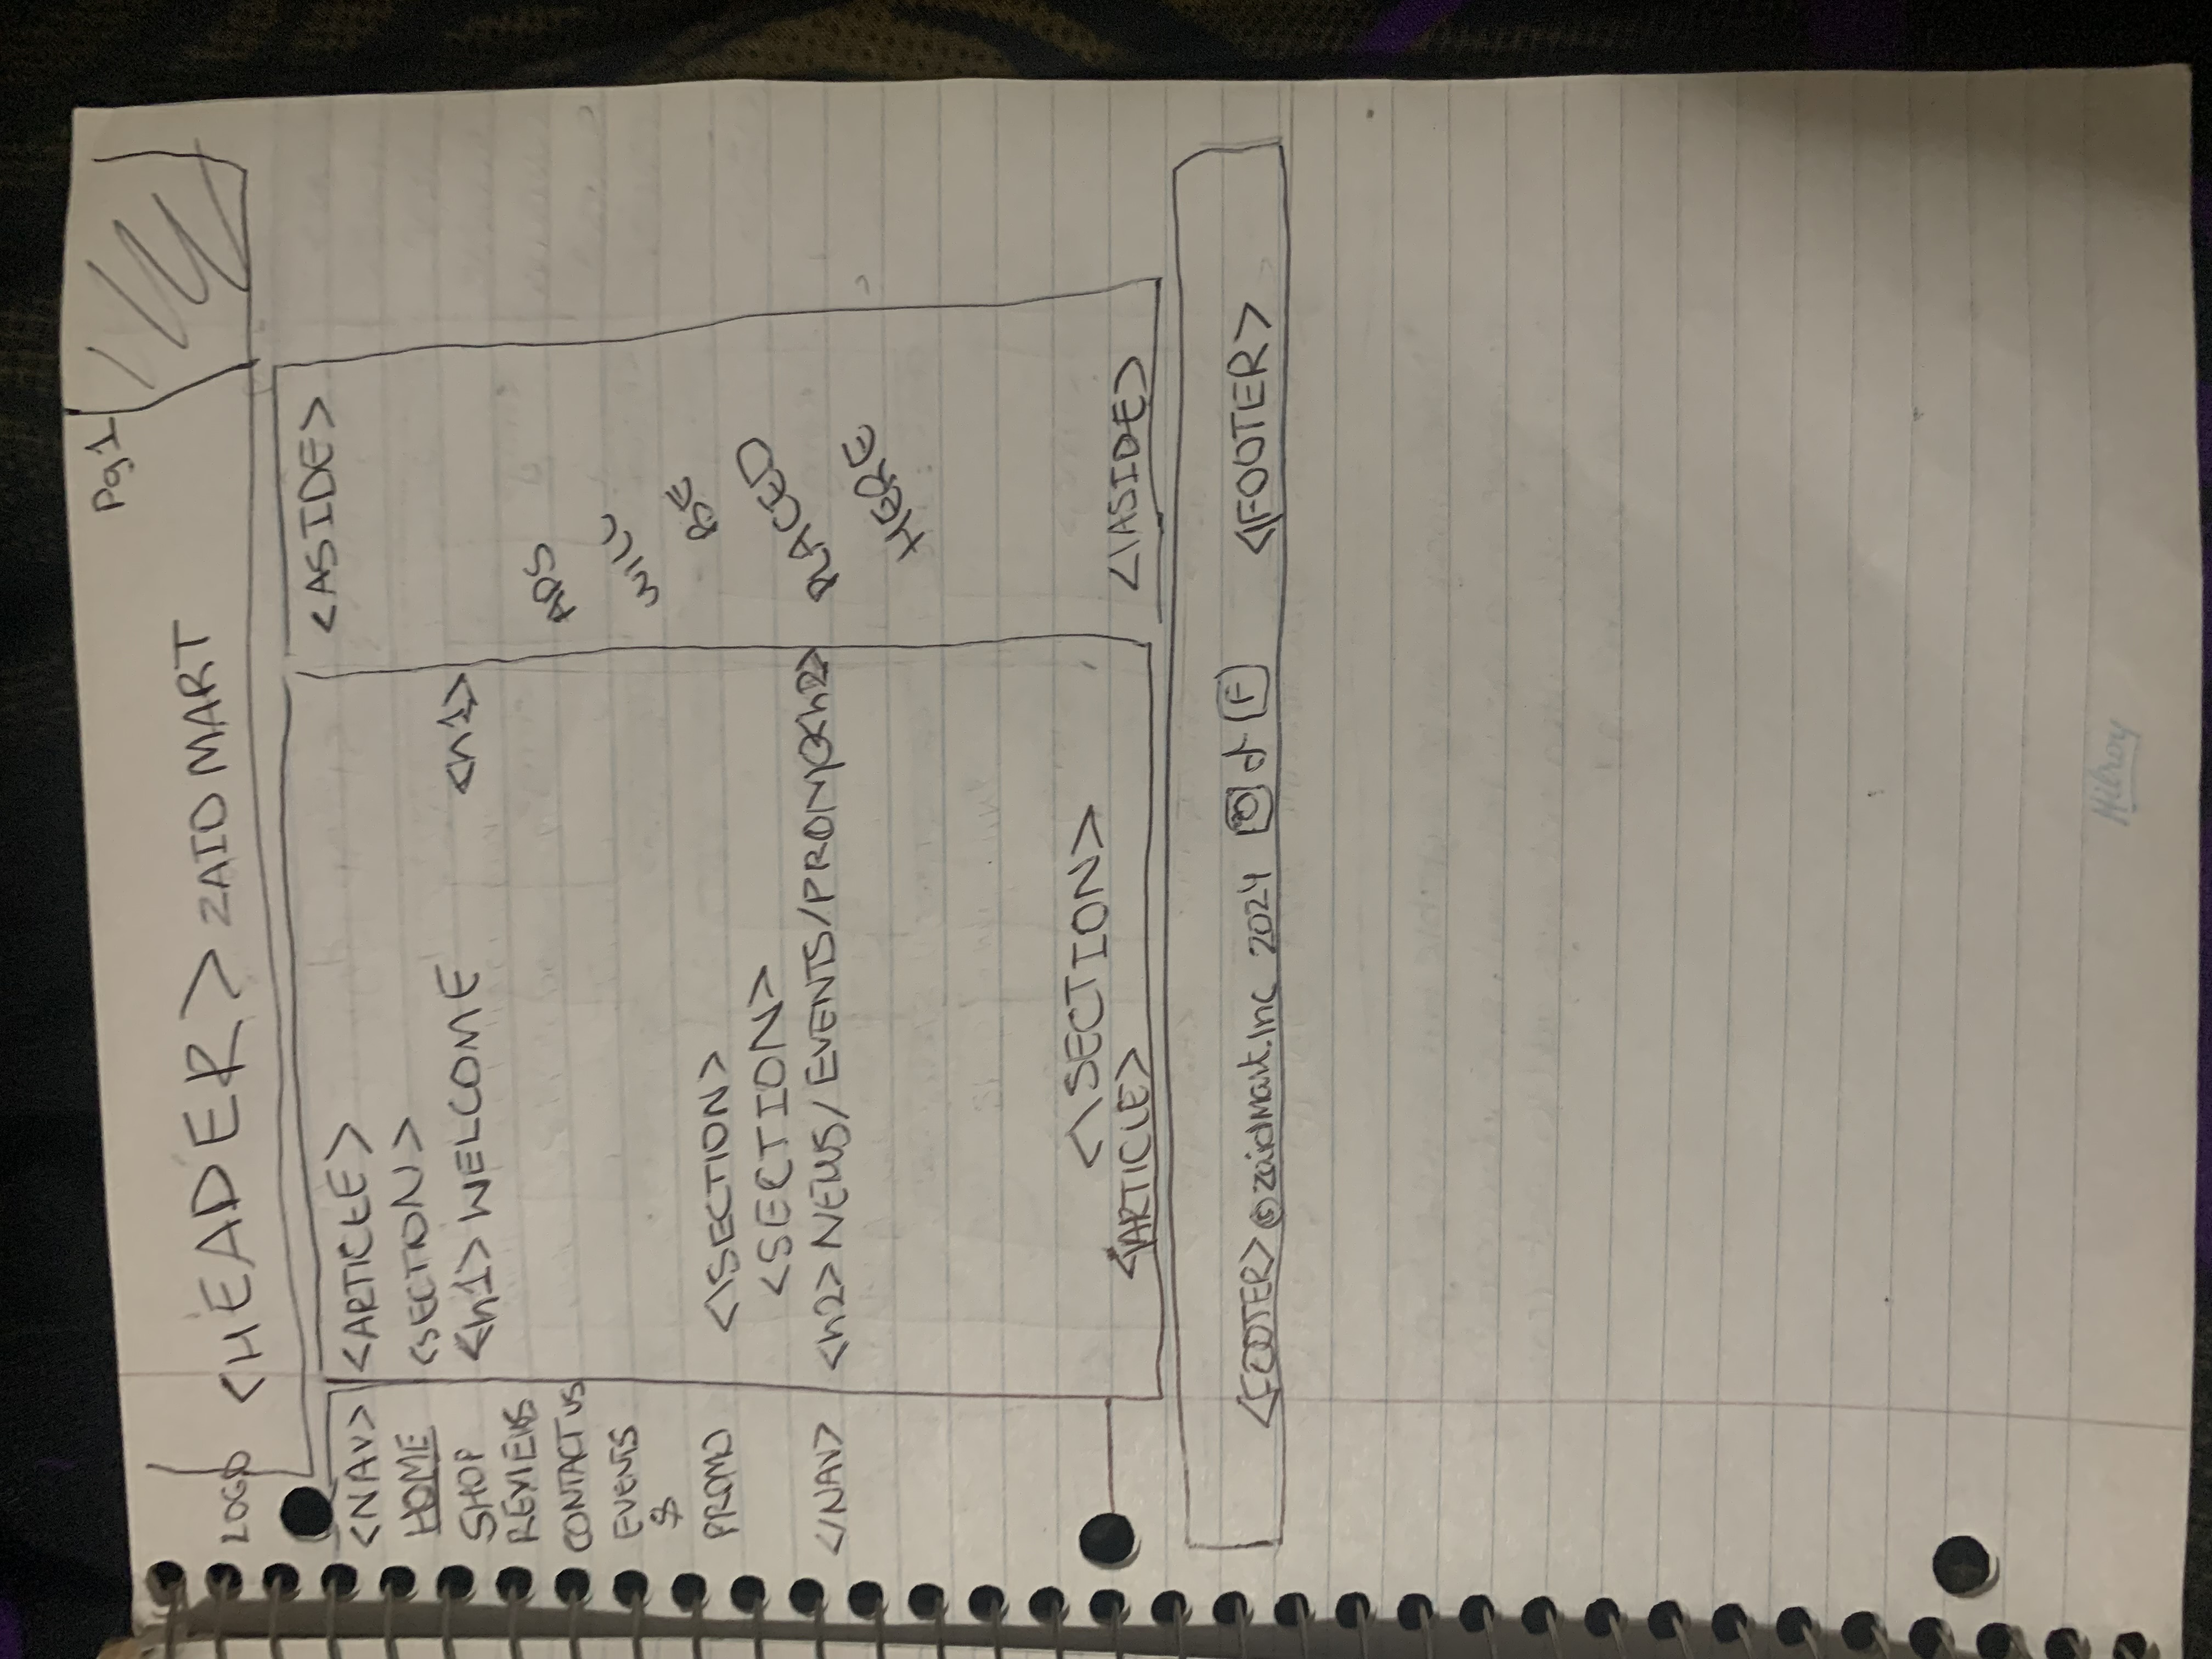 Pg 1
LOGO <HEADER> ZAID MART
<NAV>
HOME
SHOP
REVIEWS
CONTACT US
EVENTS
&
PROMO
</NAV>
<ARTICLE>
<SECTION>
<h1> WELCOME <h1>
<\SECTION>
<SECTION>
<h2> NEWS/ EVENTS/PROMO<h2>
<\SECTION>
<\ARTICLE>
<ASIDE>
ADS
WILL
BE
PLACED
HERE
<\ASIDE>
<FOOTER> ©zaidMart.Inc 2024 F <\FOOTER>
Hilroy